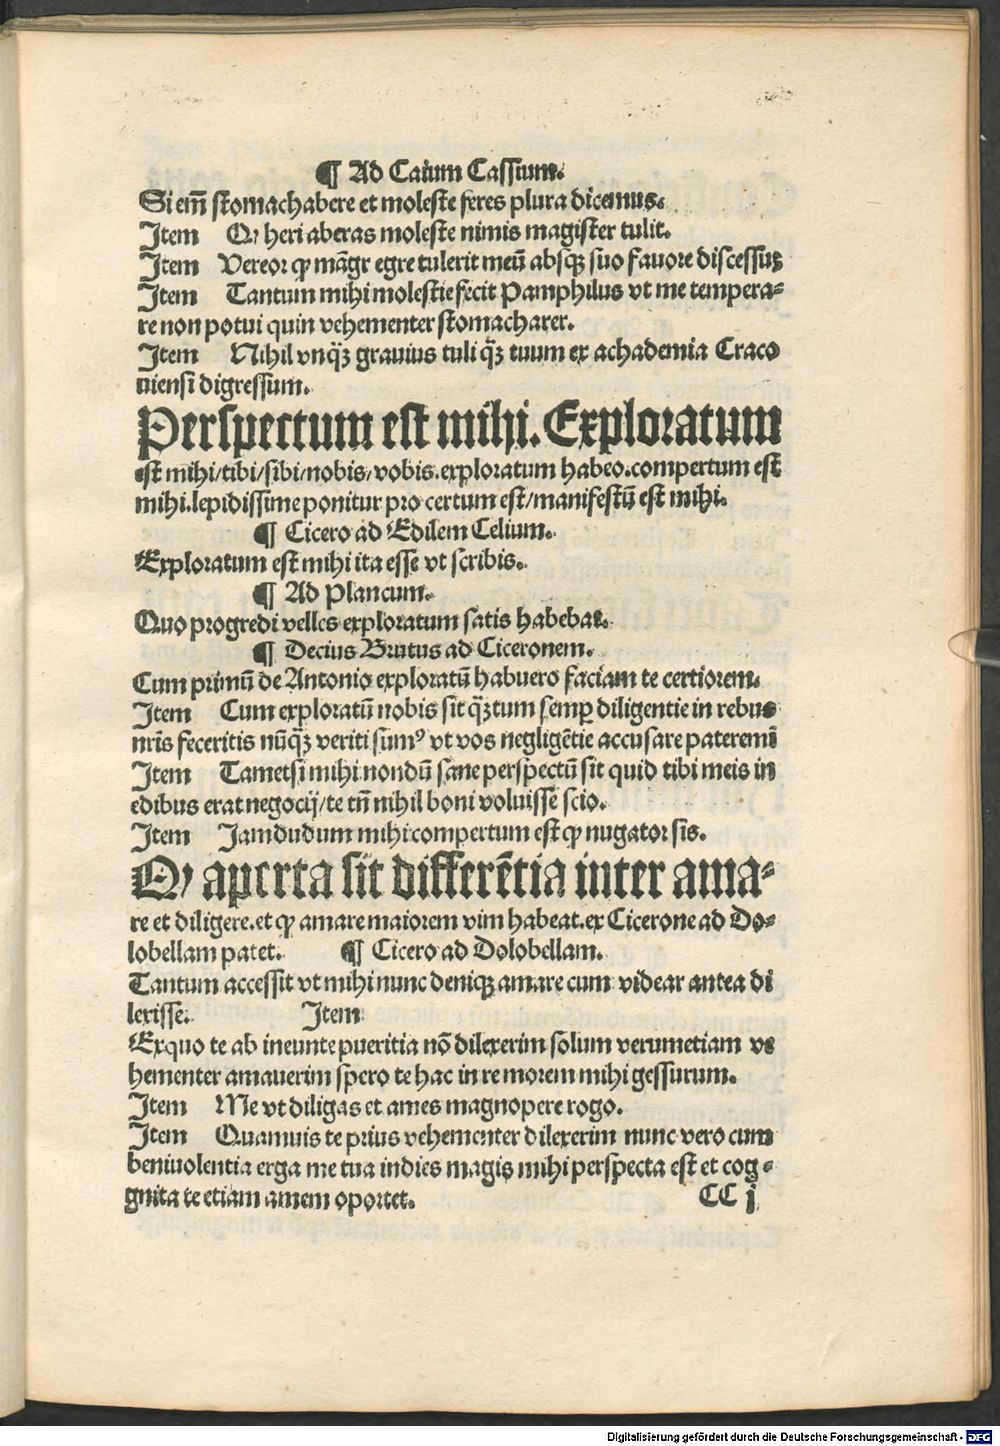 ¶ Ad Caium Cassium.
Si em̄ stomachabere et moleste feres plura dicemus.
Item Qꝫ heri aberas moleste nimis magister tulit.
Item Vereor ꝙ māgr egre tulerit meū absqꝫ suo fauore discessuꝫ
Item Tantum mihi molestie fecit Pamphilus vt me tempera-
re non potui quin vehementer stomacharer.
Item Nihil vnq̄ꝫ grauius tuli q̄ꝫ tuum ex achademia Craco
uiensi digressum.
Perspectum est mihi. Exploratum
est mihi/tibi/sibi/nobis/vobis.exploratum habeo.compertum est
mihi.lepidissime ponitur pro certum est/manifestū est mihi.
¶ Cicero ad Edilem Celium.
Exploratum est mihi ita esse vt scribis.
¶ Ad Plancum.
Quo progredi velles exploratum satis habebat.
¶ Decius Brutus ad Ciceronem.
Cum primū de Antonio exploratū habuero faciam te certiorem.
Item Cum exploratū nobis sit q̄ꝫtum semꝑ diligentie in rebus
nr̄is feceritis nūq̄ꝫ veriti sumꝰ vt vos negligētie accusare pateremī
Item Tametsi mihi nondū sane perspectū sit quid tibi meis in
edibus erat negocij/te tn̄ nihil boni voluisse scio.
Item Jamdudum mihi compertum est ꝙ nugator sis.
Qꝫ aperta sit differētia inter ama-
re et diligere.et ꝙ amare maiorem vim habeat.ex Cicerone ad Do-
lobellam patet. ¶ Cicero ad Dolobellam.
Tantum accessit vt mihi nunc deniqꝫ amare cum videar antea di
lexisse. Item
Exquo te ab ineunte pueritia nō dilexerim solum verumetiam ve
hementer amauerim spero te hac in re morem mihi gessurum.
Item Me vt diligas et ames magnopere rogo.
Item Quamuis te prius vehementer dilexerim nunc vero cum
beniuolentia erga me tua indies magis mihi perspecta est et cog-
gnita te etiam amem oportet. CC j
Digitalisierung gefördert durch die Deutsche Forschungsgemeinschaft - DFG